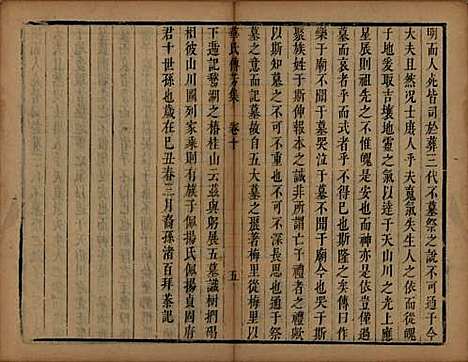 明而人死皆司於葬三代不墓祭之說不可通于今
大夫且然况士庶人乎夫䰟氣失生人之日不能從魄
子地爰取吉壤地靈之氣以達于天山川之光上應
星辰則祖先之不惟魄是安也而神亦是依豈得過
墓而哀者乎而式者乎不得已也斯隆之矣傳曰作
樂于廟不聞于墓哭泣于墓不聞于廟今也哭于斯
聚族姓于斯伸報本之誠非所謂亡于禮者之禮
以斯知墓之不可不重也不可不深長思也
墓之意而記墓故自五大墓之表著梅里從梅里以
下遞記鵞湖之椿桂山云茲與躬展五墓識樹捫碣
彼山川圖列家乘子佩揚氏佩揚貞固府
君十世孫也歲在己丑春三月裔孫渚百拜茶記
華氏傳芳集
卷十
五